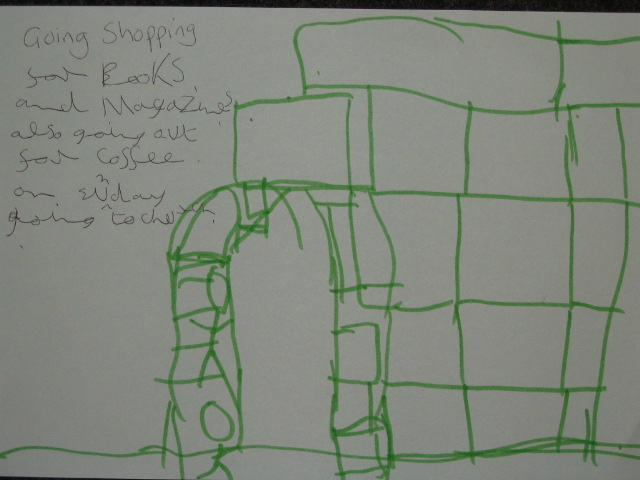 Going Shopping
for Books
and Magazines
also going out
for Coffee
on Sunday
going to church.